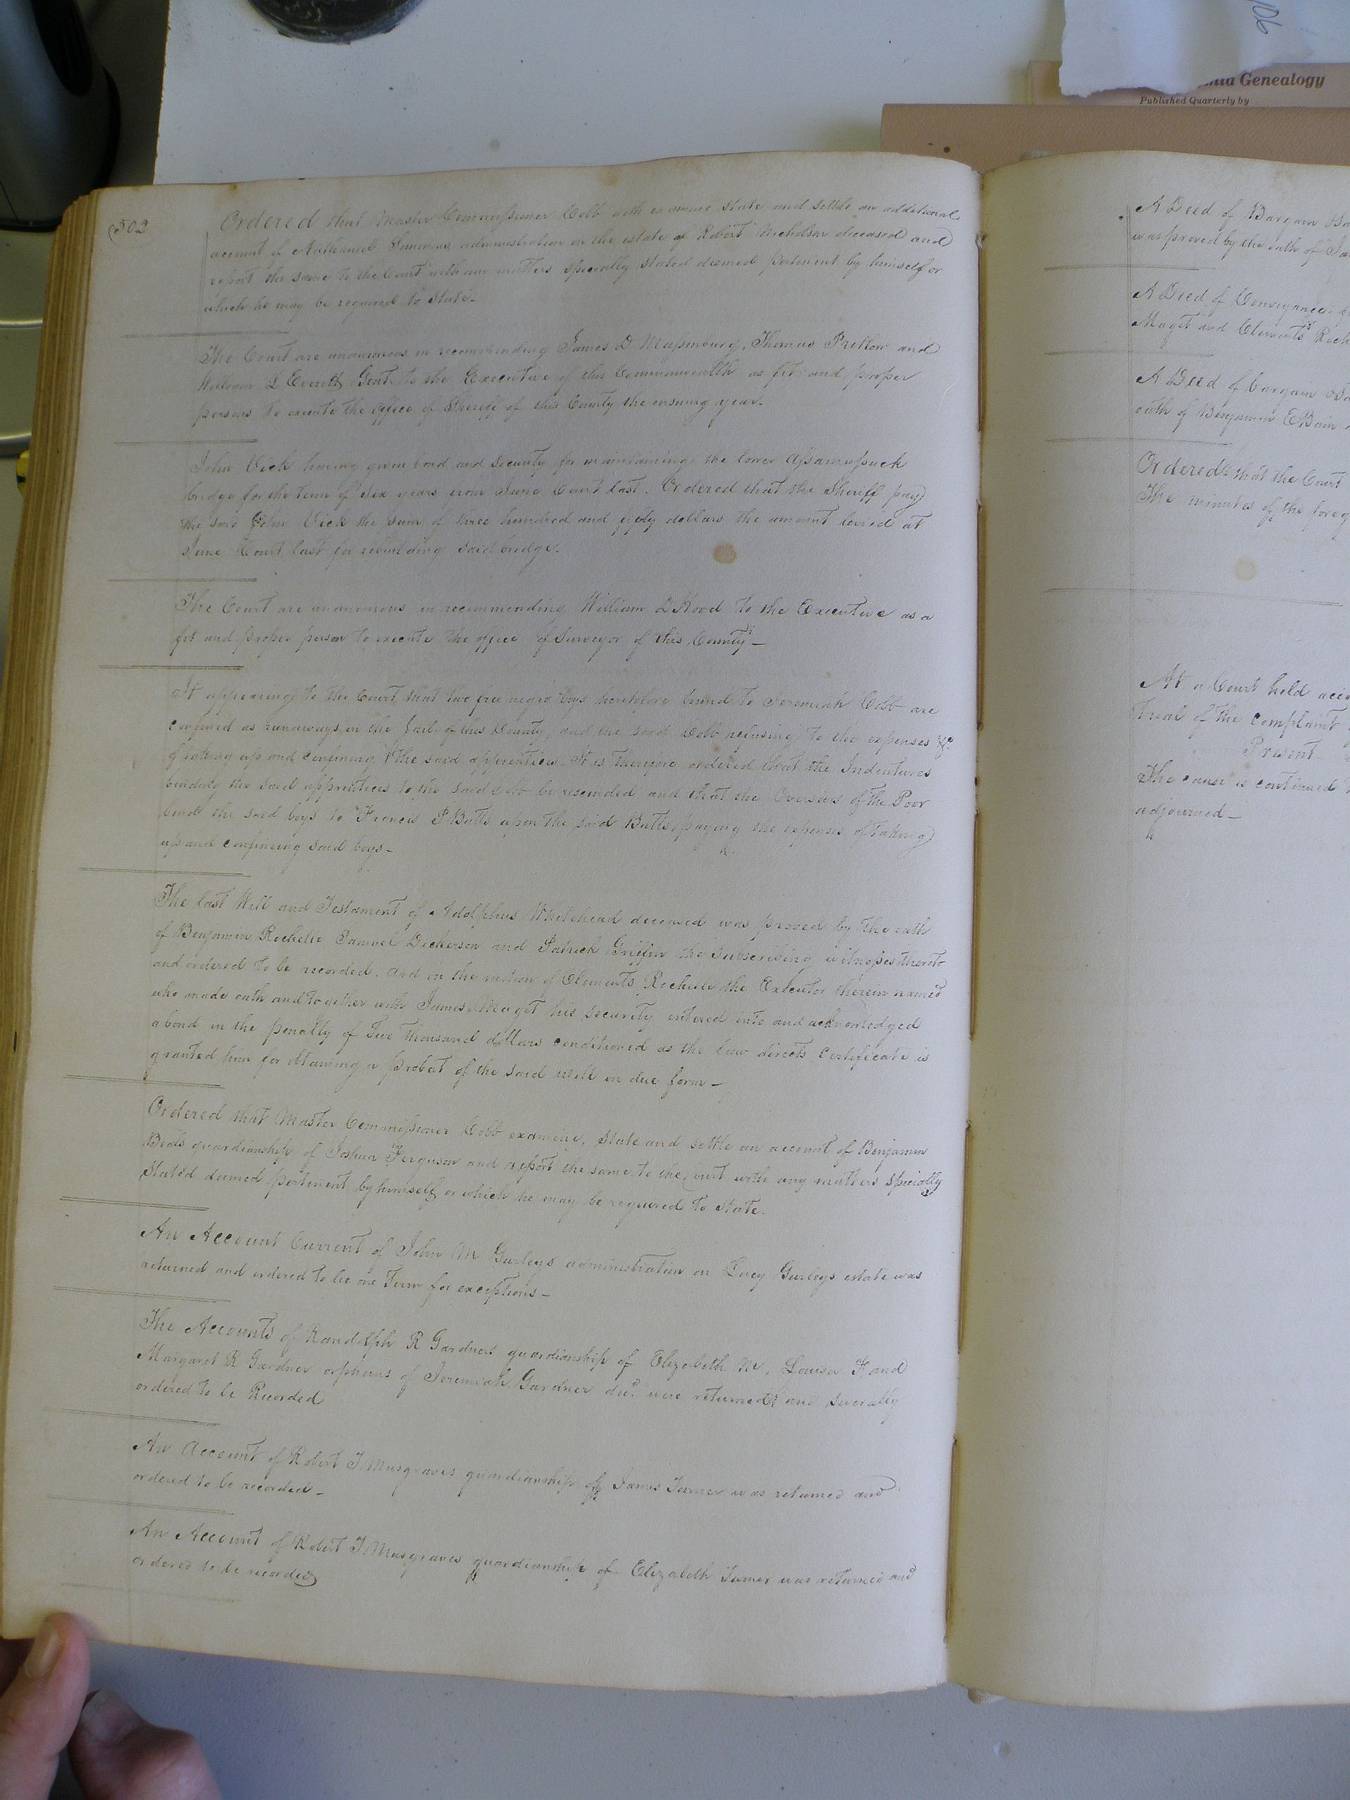 106
Genealogy
Published Quarterly by
502
Ordered that Master Commissioner Cobb do examine state and settle an additional
account of Nathaniel Simmons administration on the estate of Robert Nicholson deceased and
report the same to the Court with any matters specially stated deemed pertinent by himself or
which he may be required to state.
The Court are unanimous in recommending James D Massenburg, Thomas Pretlow and
William D Everett Gent. to the Executive of this Commonwealth as fit and proper
persons to execute the office of Sheriff of this County the ensuing year.
John Vick having given bond and security for maintaining the lower Assamusuck
bridge for the term of Six years from June Court last. Ordered that the Sheriff pay
the said John Vick the sum of three hundred and fifty dollars the amount levied at
June Court last for rebuilding said bridge.
The Court are unanimous in recommending William D Hood to the Executive as a
fit and proper person to execute the office of Surveyor of this County—
It appearing to the Court that two free negro boys heretofore bound to Jeremiah Cobb are
confined as runaways in the Jail of this County, and the said Cobb refusing to the expenses &c
of taking up and confining the said apprentices. It is therefore ordered that the Indentures
binding the said apprentices to the said Cobb be rescinded and that the Overseers of the Poor
bind the said boys to Francis P Butts upon the said Butts paying the expenses of taking
up and confining said boys—
The last Will and Testament of Adolphus Whitehead deceased was proved by the oath
of Benjamin Rochelle Samuel Dickerson and Patrick Griffin the subscribing witnesses thereto
and ordered to be recorded. And on the motion of Clements Rochelle the Executor therein named
who made oath and together with James Maget his security entered into and acknowledged
a bond in the penalty of Five thousand dollars conditioned as the law directs certificate is
granted him for obtaining a probat of the said will in due form—
Ordered that Master Commissioner Cobb examine, state and settle an account of Benjamin
Beals guardianship of Joshua Ferguson and report the same to the Court with any matters specially
Stated deemed pertinent by himself or which he may be required to state.
An Account Current of John M Gurleys administration on Lucy Gurleys estate was
returned and ordered to lie one Term for exceptions—
The Accounts of Randolph R Gardners guardianship of Elizabeth M, Louisa F and
Margaret R Gardner orphans of Jeremiah Gardner decd. were returned and severally
ordered to be Recorded
An Account of Robert T Musgraves guardianship of James Turner was returned and
ordered to be recorded—
An Account of Robert T Musgraves guardianship of Elizabeth Turner was returned and
ordered to be recorded
A Deed of Bargain
was proved by the oath of
A Deed of Conveyance
Maget and Clements
A Deed of bargain
oath of Benjamin E Bain
Ordered that the Court
The minutes of the foreg
At a Court held
trial of the complaint
Present
The cause is continued
adjourned—